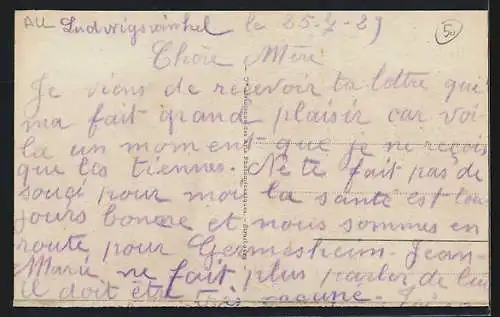 All Ludwigswinkel le 25-7-29
50
Chère Mère
Je viens de recevoir ta lettre qui
ma fait grand plaisir car voi
la un moment que je ne reçois
que les tiennes. Ne te fait pas de
souçi pour moi la santé est tou
jours bonne et nous sommes en
route pour Germesheim. Jean-
Marie ne fait plus parler de lui
il doit être très